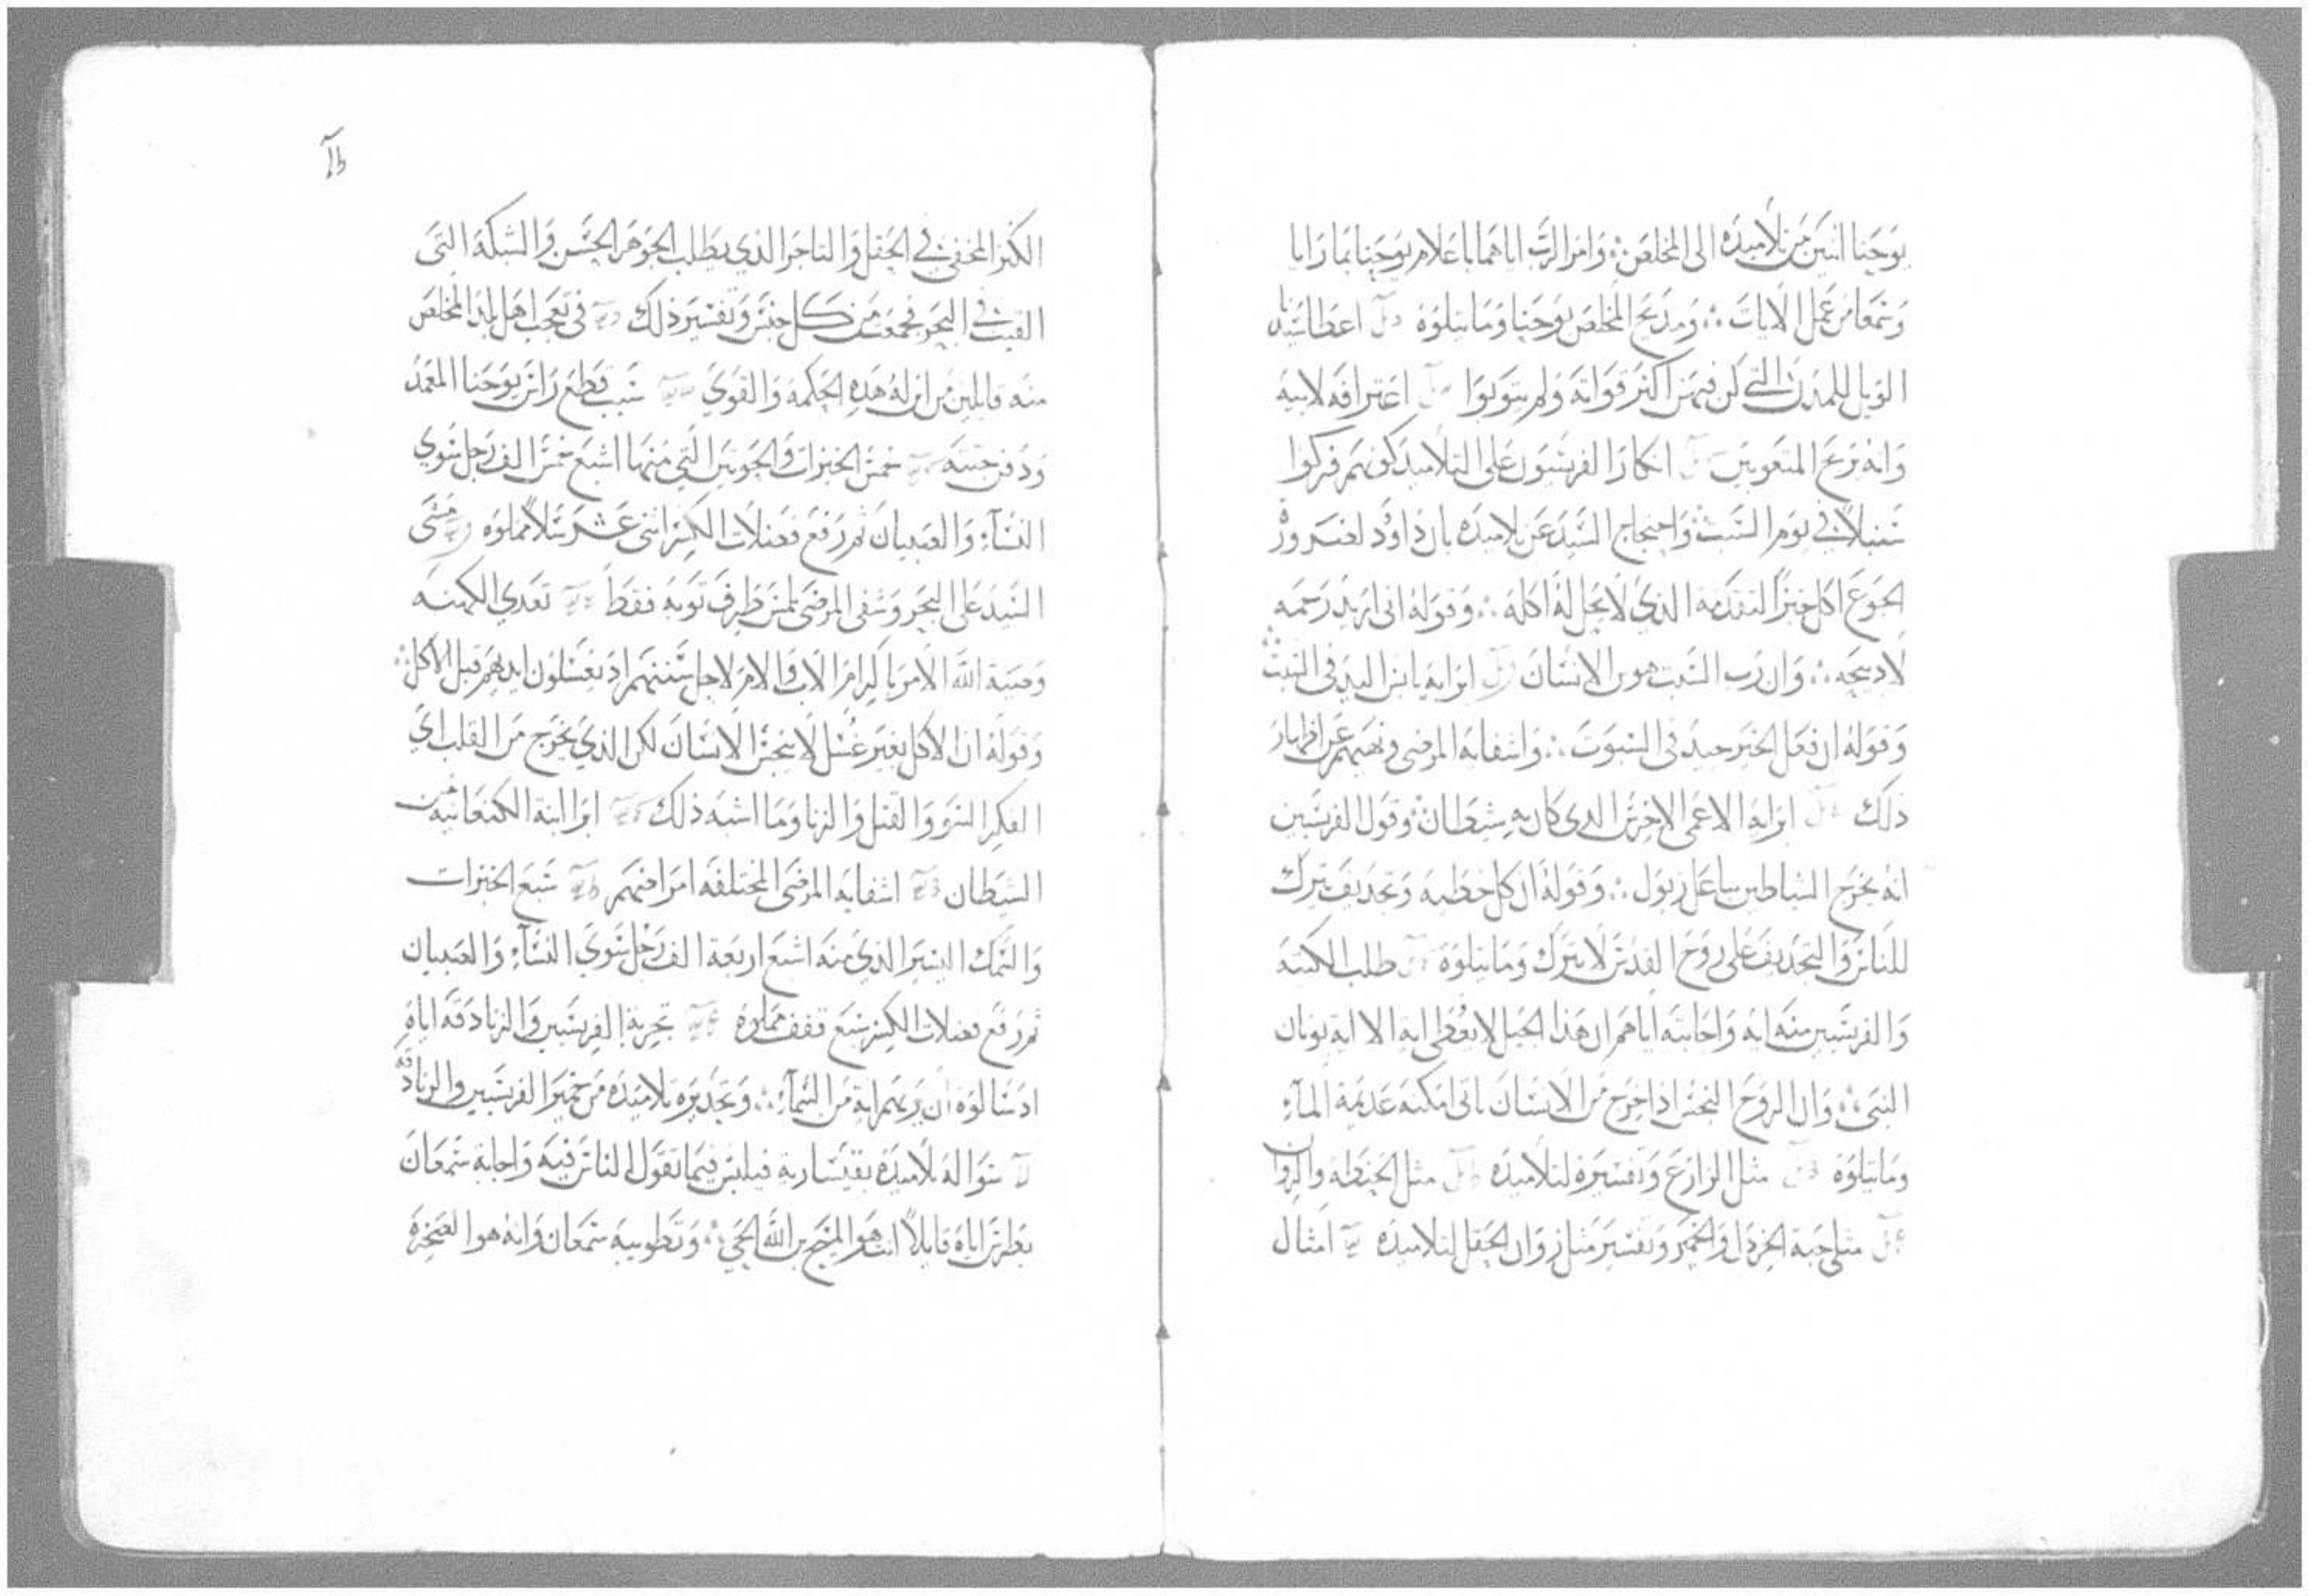 يوحنا اثنين من تلاميذه الى المخلص ∴ وامر الرب اياهما باعلام يوحنا بما رايا
وسمعا من عمل الايات ∴ ومديح المخلص يوحنا وما يتلوه اعطا
الويل للمدن التي كن فيهن اكثر قواته ولم يتوبوا اعترافه لابيه
وانه مريح المتعوبين انكار الفريسيون على التلاميذ كونهم فركوا
سنبلاً في يوم السبت واحتجاج السيد عن تلاميذه بان داوود لضرورة
الجوع اكل خبز التقدمه الذي لا يحل له اكله ∴ وقوله اني اريد رحمه
لا ذبيحه ∴ وان رب السبت هو بن الانسان ابرايه يابس اليد في السبت
وقوله ان فعل الخير جيد في السبوت ∴ واشفايه المرضى ونهيهم عن اظهار
ذلك ابرايه الاعمى الاخرس الدي كان به شيطان وقول الفريسيين
انه يخرج الشياطين بباعل زبول ∴ وقوله ان كل خطيه وتجديف يترك
للناس والتجديف على روح القدس لا يترك وما يتلوه طلب الكتبه
والفريسيين منه ايه واجابته اياهم ان هذا الجيل لا يعطى ايه الا اية يونان
النبي ∴ وان الروح النجس اذا خرج من الانسان ياتي امكنه عديمة المآء
وما يتلوه مثل الزارع وتفسيره لتلاميذه مثل الحنطه والزوان
مثل حبة الخردل والخمير وتفسير مثل زوان الحقل لتلاميذه امثال
الكنز المخفى في الحقل والتاجر الذي يطلب الجوهر الحسن والشبكه التي
القيت في البحر فجمعت من كل جنس وتفسير ذلك في تعجب اهل بلد المخلص
منه قايلين من اين له هذه الحكمه والقوي سبب قطع راس يوحنا المعمد
ودفن جتته خمس الخبزات والحوتين التي منها اشبع خمس الف رجل سوي
النسآء والصبيان ثم رفع فضلات الكسر اثنى عشر سلاً مملوه مشى
السيد على البحر وشفى المرضى بلمس طرف ثوبه فقط تعدي الكهنه
وصية الله الامر باكرام الاب والام لاجل سننهم اد يغسلون ايديهم قبل الاكل ∴
وقوله ان الاكل بغير غسل لا ينجس الانسان لكن الذي يخرج من القلب اي
الفكر السوء والقتل والزنا وما اشبه ذلك ابرا ابنة الكنعانيه من
الشيطان اشفايه المرضى المختلفه امراضهم سبع الخبزات
والسمك اليسير الذي منه اشبع اربعة الف رجل سوي النسآء والصبيان
ثم رفع فضلات الكسر سبع قفف مملوه تجربة الفريسيين والزنادقه اياه
اد سالوه ان يريهم اية من السمآء ∴ وتحذيره تلاميذه من خمير الفريسيين والزنادقه
سواله تلاميذه بقيسارية فيلبس فيما تقول الناس فيه واجابة سمعان
بطرس اياه قايلاً انت هو المسيح بن الله الحي ∴ وتطويبه سمعان وانه هو الصخره